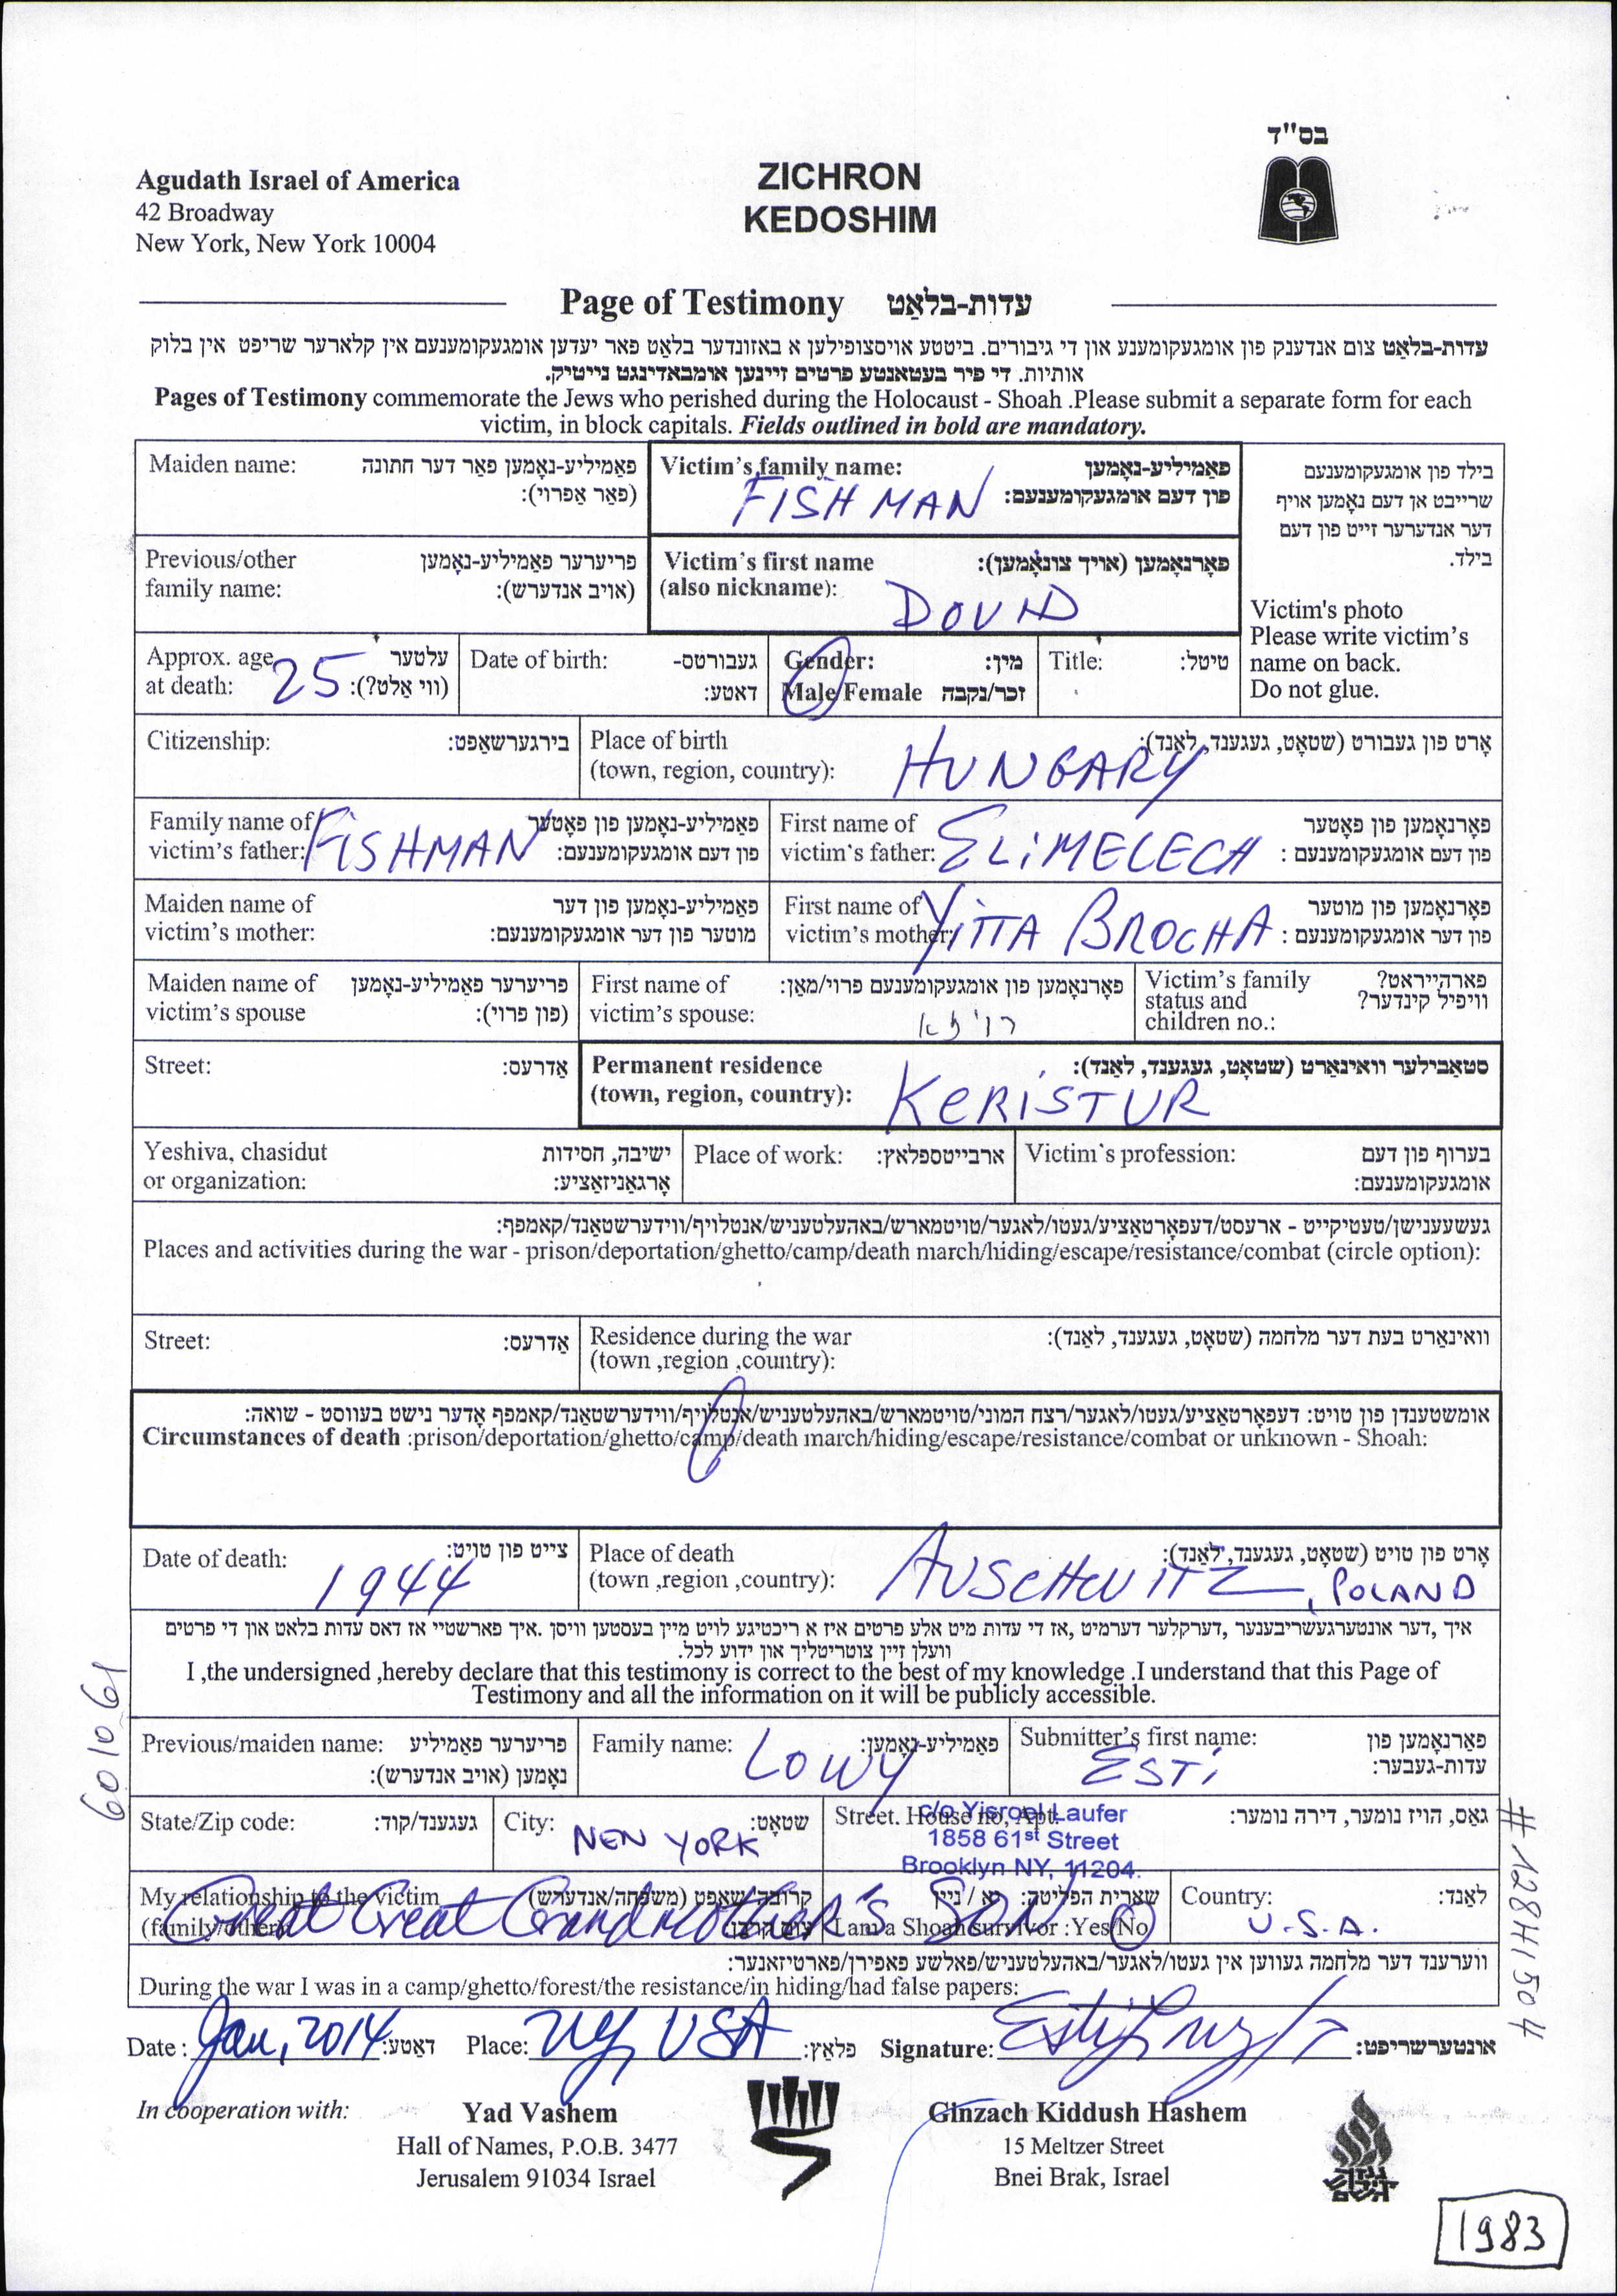 בס"ד
Agudath Israel of America
42 Broadway
New York, New York 10004
ZICHRON
KEDOSHIM
Page of Testimony עדות-בלאַט
עדות-בלאַט צום אנדענק פון אומגעקומענע און די גיבורים. ביטטע אויסצופילען א באזונדער בלאַט פאר יעדען אומגעקומענעם אין קלארער שריפט אין בלוק
אותיות. די פיר בעטאנטע פרטים זיינען אומבאדינגט נייטיק.
Pages of Testimony commemorate the Jews who perished during the Holocaust - Shoah .Please submit a separate form for each
victim, in block capitals. Fields outlined in bold are mandatory.
Maiden name: פאַמיליע-נאָמען פאַר דער חתונה
(פאַר אַפרוי):
Victim's family name: פאַמיליע-נאָמען
פון דעם אומגעקומענעם:
FISHMAN
בילד פון אומגעקומענעם
שרייבט אן דעם נאָמען אויף
דער אנדערער זייט פון דעם
בילד.
Victim's photo
Please write victim's
name on back.
Do not glue.
Previous/other פריערער פאַמיליע-נאָמען
family name: (אויב אנדערש):
Victim's first name פאָרנאָמען (אויך צונאָמען):
(also nickname):
DOVID
Approx. age עלטער
at death: 25 (ווי אַלט?):
Date of birth: געבורטס-
דאַטע:
Gender: מין:
Male/Female זכר/נקבה
Title: טיטל:
Citizenship: בירגערשאַפט:
Place of birth אָרט פון געבורט (שטאָט, געגענד, לאַנד):
(town, region, country): HUNGARY
Family name of פאַמיליע-נאָמען פון פאָטער
victim's father: פון דעם אומגעקומענעם:
FISHMAN
First name of פאָרנאָמען פון פאָטער
victim's father: פון דעם אומגעקומענעם :
ELIMELECH
Maiden name of פאַמיליע-נאָמען פון דער
victim's mother: מוטער פון דער אומגעקומענעם:
First name of פאָרנאָמען פון מוטער
victim's mother: פון דער אומגעקומענעם :
YITTA BROCHA
Maiden name of פריערער פאַמיליע-נאָמען
victim's spouse (פון פרוי):
First name of פאָרנאָמען פון אומגעקומענעם פרוי/מאַן:
victim's spouse:
Victim's family פארהייראט?
status and וויפיל קינדער?
children no.:
Street: אַדרעס:
Permanent residence סטאַבילער וואינאָרט (שטאָט, געגענד, לאַנד):
(town, region, country): KERISTUR
Yeshiva, chasidut ישיבה, חסידות
or organization: אָרגאַניזאַציע:
Place of work: ארבייטספלאץ:
Victim`s profession: בערוף פון דעם
אומגעקומענעם:
געשעענישן/טעטיקייט - ארעסט/דעפאָרטאַציע/געטו/לאגער/טויטמארש/באהעלטעניש/אנטלויף/ווידערשטאַנד/קאמפף:
Places and activities during the war - prison/deportation/ghetto/camp/death march/hiding/escape/resistance/combat (circle option):
Street: אַדרעס:
Residence during the war וואינאָרט בעת דער מלחמה (שטאָט, געגענד, לאַנד):
(town ,region ,country):
אומשטענדן פון טויט: דעפאָרטאַציע/געטו/לאגער/רצח המוני/טויטמארש/באהעלטעניש/אנטלויף/ווידערשטאַנד/קאמפף אָדער נישט בעוווסט - שואה:
Circumstances of death :prison/deportation/ghetto/camp/death march/hiding/escape/resistance/combat or unknown - Shoah:
Date of death: צייט פון טויט:
1944
Place of death אָרט פון טויט (שטאָט, געגענד, לאַנד):
(town ,region ,country): AUSCHWITZ, POLAND
איך ,דער אונטערגעשריבענער ,דערקלער דערמיט ,אז די עדות מיט אלע פרטים איז א ריכטיגע לויט מיין בעסטען וויסן .איך פארשטיי אז דאס עדות בלאט און די פרטים
וועלן זיין צוטריטליך און ידוע לכל.
I ,the undersigned ,hereby declare that this testimony is correct to the best of my knowledge .I understand that this Page of
Testimony and all the information on it will be publicly accessible.
Previous/maiden name: פריערער פאַמיליע
נאָמען (אויב אנדערש):
Family name: פאַמיליע-נאָמען:
LOWY
Submitter's first name: פאָרנאָמען פון
עדות-געבער:
ESTI
State/Zip code: געגענד/קוד:
City: שטאָט:
NEW YORK
Street. House no, Apt. גאַס, הויז נומער, דירה נומער:
c/o Yisroel Laufer
1858 61st Street
Brooklyn NY, 11204.
My relationship to the victim קרובה שאַפט (משפחה/אנדערש)
(family/other):
Great Great Grandmother's SON
שארית הפליטה: יא / ניין
I am a Shoah survivor :Yes/No
Country: לאַנד:
U.S.A.
ווערענד דער מלחמה געווען אין געטו/לאגער/באהעלטעניש/פאלשע פאפירן/פארטיזאנער:
During the war I was in a camp/ghetto/forest/the resistance/in hiding/had false papers:
Date : Jan, 2014 דאַטע: Place: NY, USA פלאַץ: Signature: אונטערשריפט:
In cooperation with:
Yad Vashem
Hall of Names, P.O.B. 3477
Jerusalem 91034 Israel
Ginzach Kiddush Hashem
15 Meltzer Street
Bnei Brak, Israel
1983
601061
#12841504